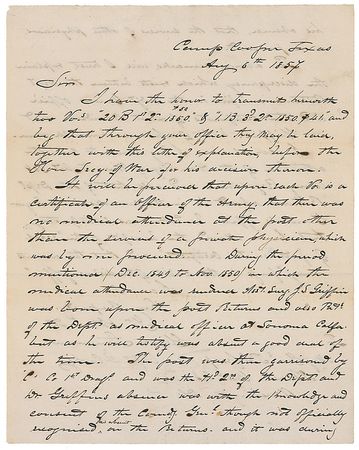 Camp Cooper Texas
Aug 6th 1857
Sir
I have the honor to transmit herewith
two Vos. 20 B 1st 2r 1850 & 7. B. 3d 2r 1850 $41 and
beg that through your office they may be laid,
together with this letter of explanation, before the
Hon Secy. of War for his decision thereon.
It will be perceived that upon each Vo. is a
certificate of an Officer of the Army, that there was
no medical attendance at the post other
than the services of a private physician, which
was by me procured. During the period
mentioned (Dec. 1849 to Nov. 1850) in which the
medical attendance was rendered Asst. Surg J. S. Griffin
was borne upon the post Returns and also
of the Dept. as medical officer at Sonoma Calfa
but as he will testify was absent a good deal of
the time. The post was then garrisoned by
C. Co 1st Drags. and was the Hd. Qrs. of the Dept. and
Dr Griffin's absence was with the knowledge and
consent of the Comdg Genl. though not officially
recognised, as absent on the Returns. and it was during